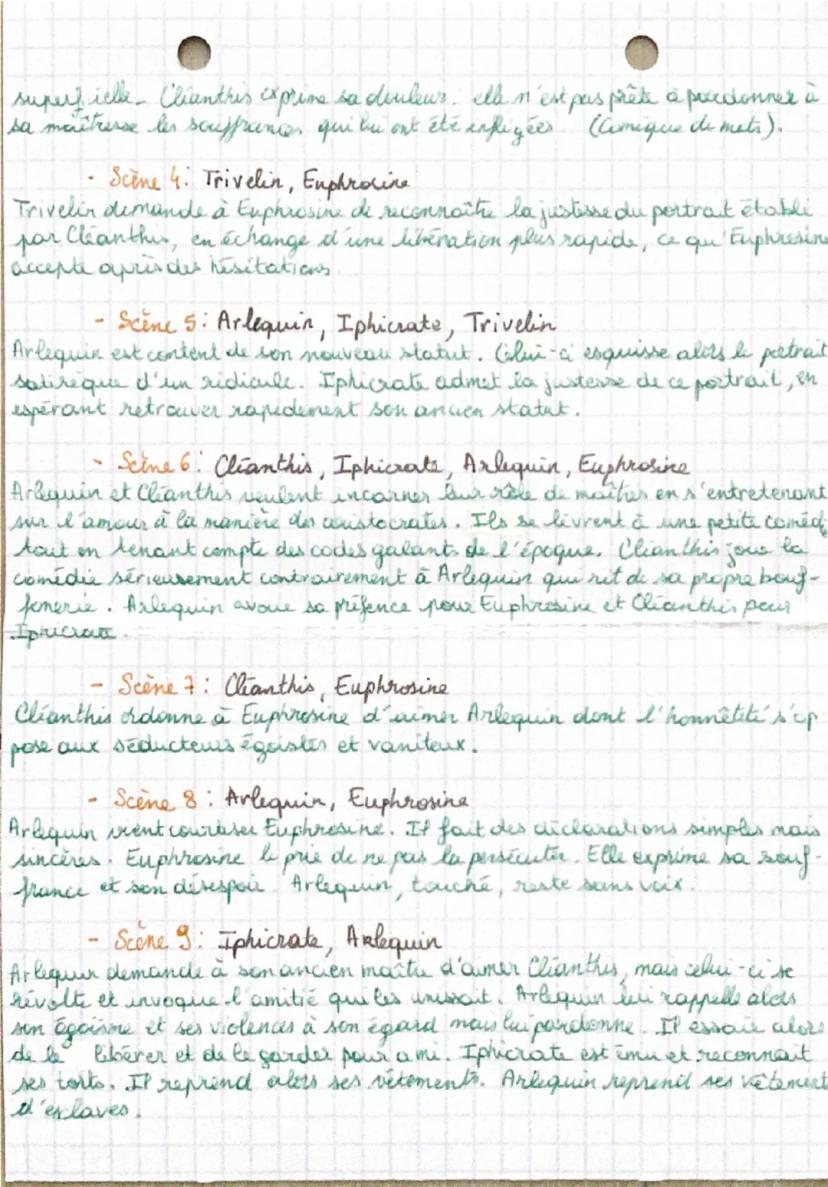 superficielle. Cléanthis exprime sa douleur : elle n'est pas prête à pardonner à
sa maîtresse les souffrances qui lui ont été infligées (Comique de mots).
- Scène 4 : Trivelin, Euphrosine
Trivelin demande à Euphrosine de reconnaître la justesse du portrait établi
par Cléanthis, en échange d'une libération plus rapide, ce qu'Euphrosine
accepte après des hésitations.
- Scène 5 : Arlequin, Iphicrate, Trivelin
Arlequin est content de son nouveau statut. Celui-ci esquisse alors le portrait
satirique d'un ridicule. Iphicrate admet la justesse de ce portrait, en
espérant retrouver rapidement son ancien statut.
- Scène 6 : Cléanthis, Iphicrate, Arlequin, Euphrosine
Arlequin et Cléanthis veulent incarner leur rôle de maîtres en s'entretenant
sur l'amour à la manière des aristocrates. Ils se livrent à une petite coméd
tout en tenant compte des codes galants de l'époque. Cléanthis joue la
comédie sérieusement contrairement à Arlequin qui rit de sa propre bouf-
fonerie. Arlequin avoue sa préfence pour Euphrosine et Cléanthis pour
Iphicrate.
- Scène 7 : Cléanthis, Euphrosine
Cléanthis ordonne à Euphrosine d'aimer Arlequin dont l'honnêtité s'op
pose aux séducteurs égoïstes et vaniteux.
- Scène 8 : Arlequin, Euphrosine
Arlequin vient courtiser Euphrosine. Il fait des déclarations simples mais
sincères. Euphrosine le prie de ne pas la persécuter. Elle exprime sa souf-
france et son désespoir. Arlequin, touché, reste sans voix.
- Scène 9 : Iphicrate, Arlequin
Arlequin demande à son ancien maître d'aimer Cléanthis, mais celui-ci se
révolte et invoque l'amitié qui les unissait. Arlequin lui rappelle alors
son égoïsme et ses violences à son égard mais lui pardonne. Il essaie alors
de le libérer et de le garder pour ami. Iphicrate est ému et reconnait
ses torts. Il reprend alors ses vêtements. Arlequin reprend ses vêtement
d'esclaves.